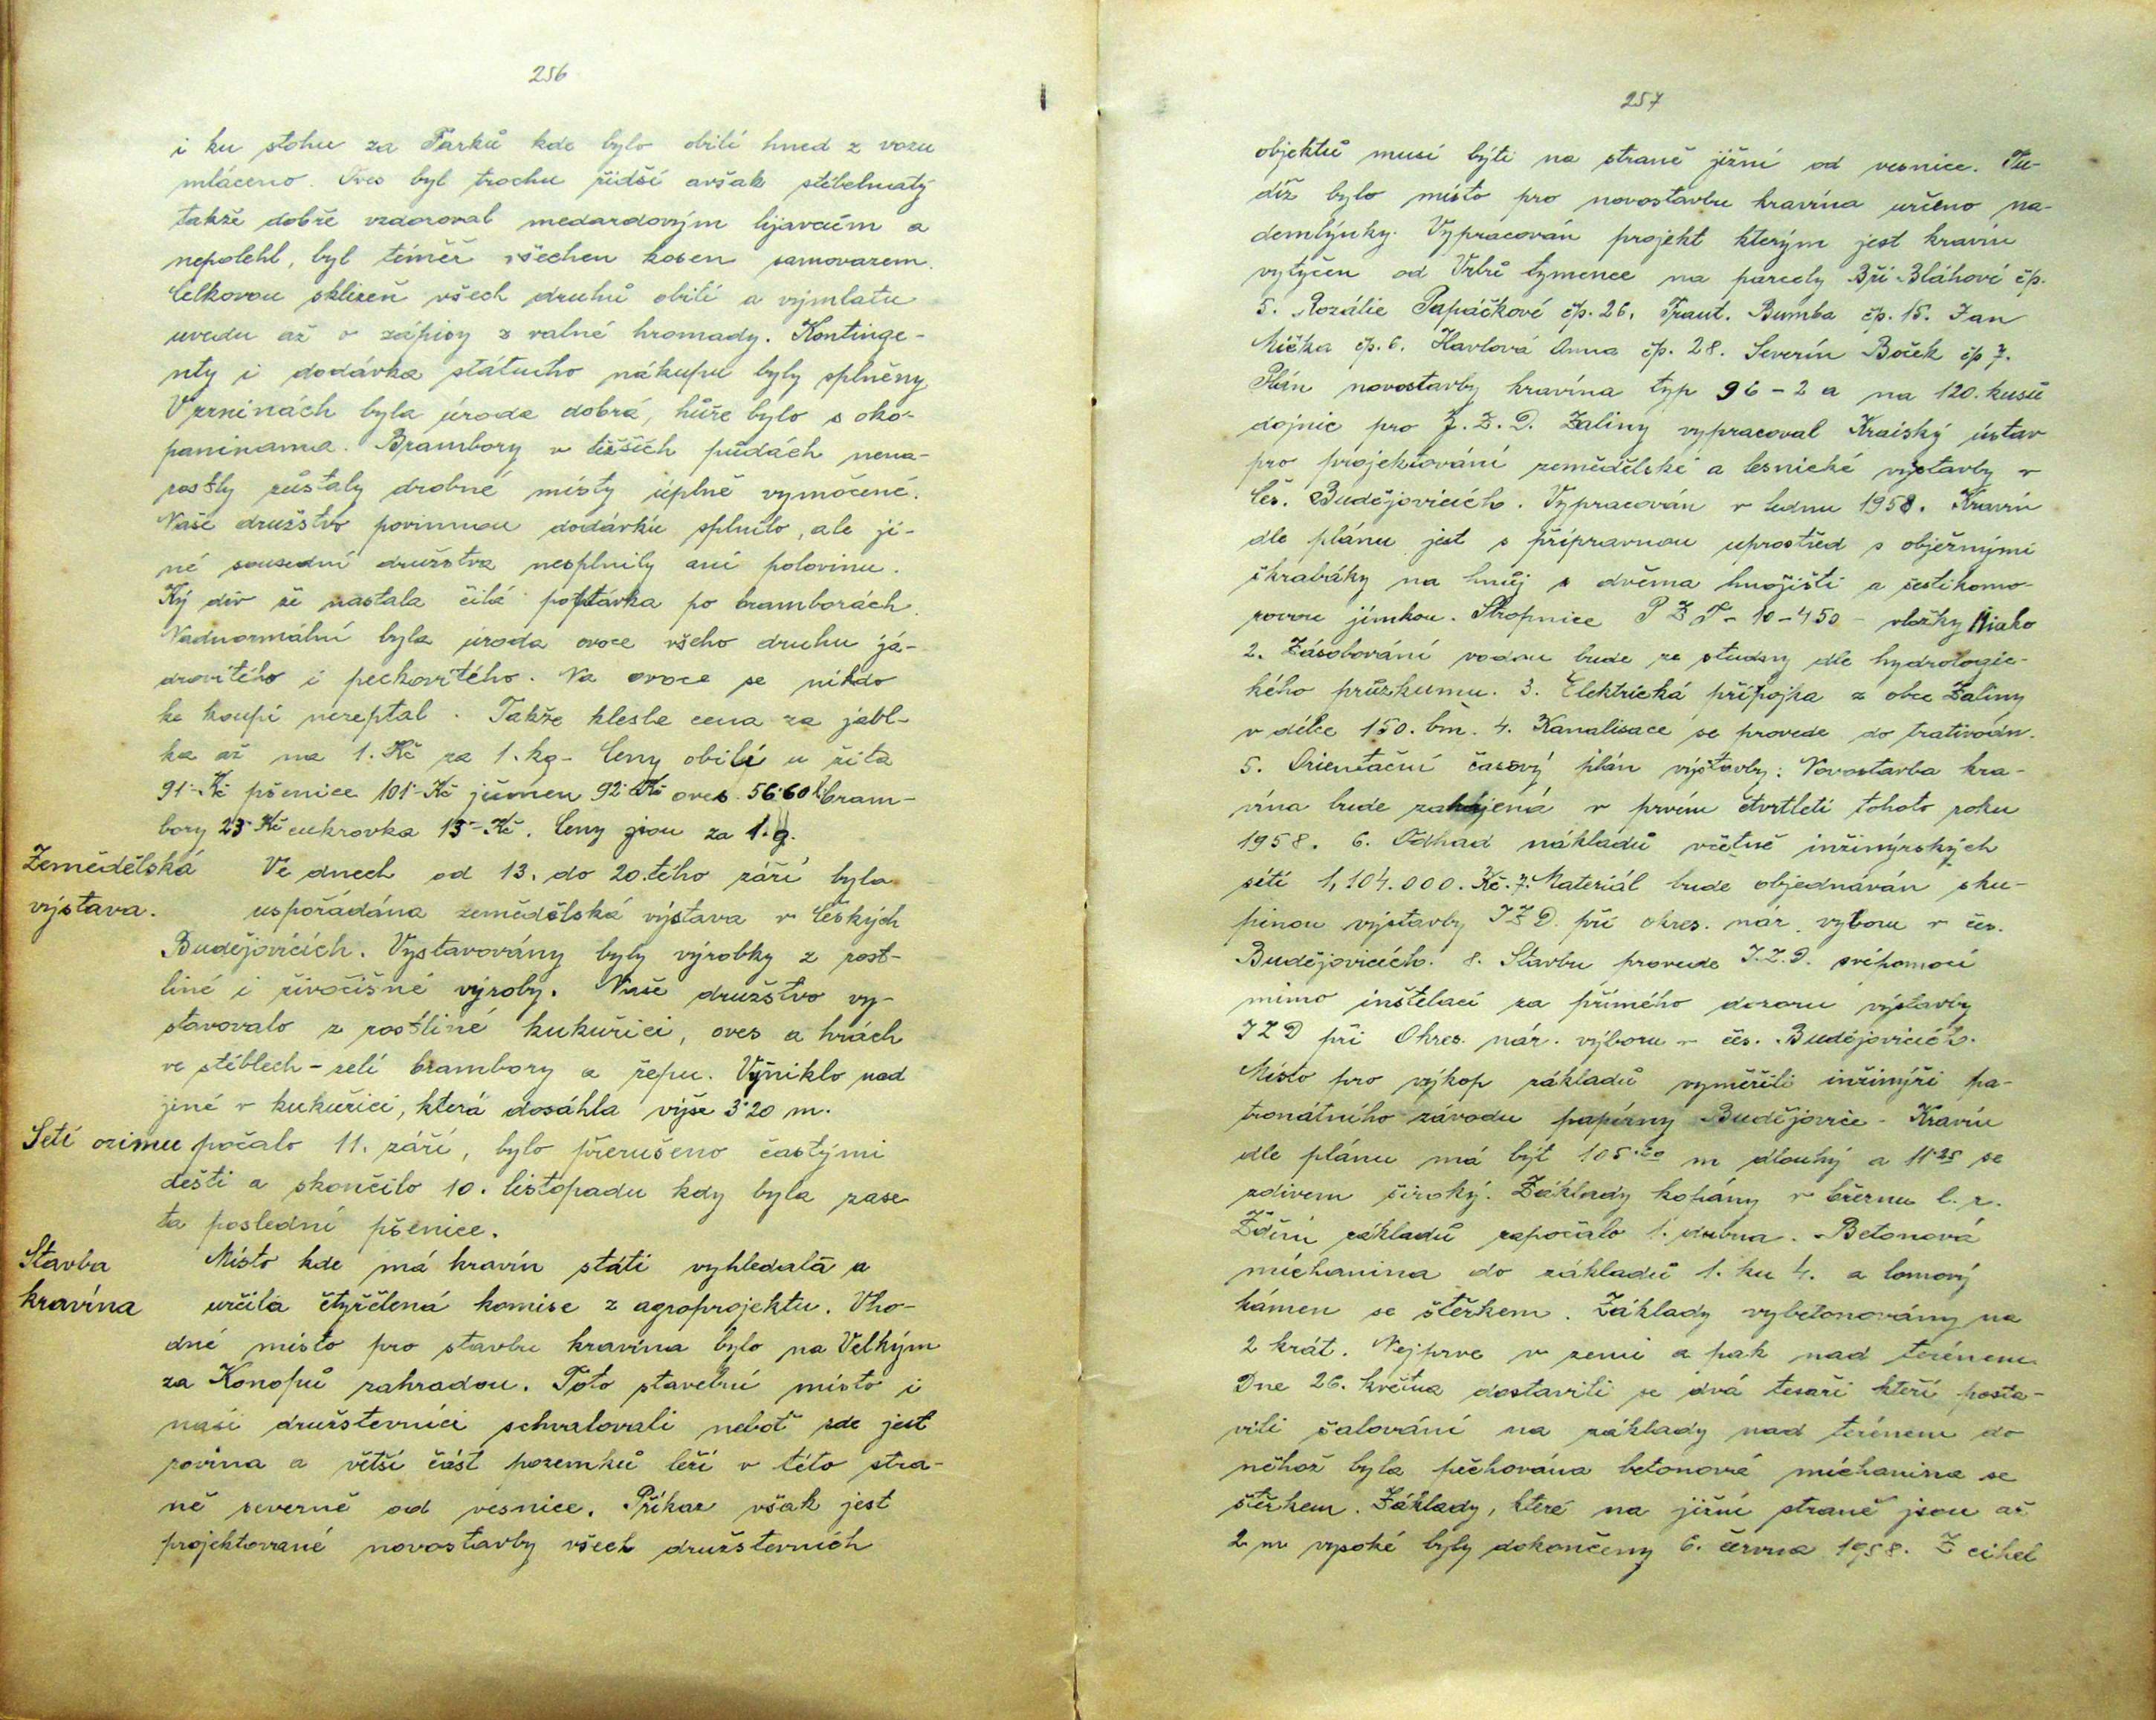 256
i ku stohu za Farků kde bylo obilí hned z vozu
mláceno. Oves byl trochu řidší avšak stébelnatý
takže dobře vzdoroval medardovým lijavcům a
nepolehl, byl téměř všechen kosen samovazem.
Celkovou sklizeň všech druhů obilí a výmlatu
uvedu až v zápisy z valné hromady. Kontinge-
nty i dodávka státního nákupu byly splněny
V pzninách byla úroda dobrá, hůře bylo s oko-
paninama. Brambory v těžších půdách nena-
rostly zůstaly drobné místy úplně vymočené.
Naše družstvo povinnou dodávku splnilo, ale ji-
né sousední družstva nesplnily ani polovinu.
Ký div že nastala čilá poptávka po bramborách.
Nadnormální byla úroda ovoce všeho druhu já-
drovitého i peckovitého. Na ovoce se nikdo
ke koupi nezeptal. Takže klesla cena za jabl-
ka až na 1. Kč za 1. kg- Ceny obilí u žita
91·- Kč pšenice 101·- Kč ječmen 92·- Kč oves 56·60 bram-
bory 23·- Kč cukrovka 15·- Kč. Ceny jsou za 1. q.
Zemědělská Ve dnech od 13. do 20.tého září byla
výstava. uspořádána zemědělská výstava v Českých
Budějovicích. Vystavovány byly výrobky z rost-
liné i živočišné výroby. Naše družstvo vy-
stavovalo z rostliné kukuřici, oves a hrách
ve stéblech - zelí brambory a řepu. Vyniklo nad
jiné v kukuřici, která dosáhla výše 3·20 m.
Setí ozimu počalo 11. září, bylo přerušeno častými
dešti a skončilo 10. listopadu kdy byla zase
ta poslední pšenice.
Stavba Místo kde má kravín státi vyhledala a
kravína určila čtyřčlená komise z agroprojektu. Vho-
dné místo pro stavbu kravína bylo na Velkým
za Konopů zahradou. Toto stavební místo i
naši družstevníci schvalovali neboť zde jest
rovina a větší část pozemků leží v této stra-
ně severně od vesnice. Příkaz však jest
projektované novostavby všech družstevních
257
objektů musí býti na straně jižní od vesnice. Tu-
díž bylo místo pro novostavbu kravína určeno na-
demlýnky. Vypracován projekt kterým jest kravín
vytyčen od Vrbů tymence na parcely Bří Bláhové čp.
5. Rozálie Papáčkové čp. 26. Frant. Bumba čp. 15. Jan
Mička čp. 6. Havlová Anna čp. 28. Severín Boček čp 7.
Plán novostavby kravína typ 96 - 2 a na 120. kusů
dojnic pro J. Z. D. Zaliny vypracoval Krajský ústav
pro projektování zemědělské a lesnické výstavby v
Čes. Budějovicích. Vypracován v lednu 1958. Kravín
dle plánu jest s přípravnou uprostřed s oběžnými
škrabáky na hnůj s dvěma hnojišti a šestikomo-
rovou jímkou. Stropnice P Z T - 10 - 450 - vložky Miako
2. Zásobování vodou bude ze studny dle hydrologic-
kého průzkumu. 3. Elektrická přípojka z obce Zaliny
v délce 150. bm. 4. Kanalisace se provede do trativodu.
5. Orientační časový plán výstavby: Novostavba kra-
vína bude zahájená v prvím čtvrtletí tohoto roku
1958. 6. Odhad nákladů včetně inžinýrských
sítí 1,104.000. Kč. 7. Materiál bude objednáván sku-
pinou výstavby JZD. při okres. nár. vyboru v čes.
Budějovicích. 8. Stavbu provede J.Z.D. svépomocí
mimo inštelací za přímého dozoru výstavby
JZD při Okres. nár. výboru v čes. Budějovicích.
Místo pro výkop základů vyměřili inžinýři pa-
tronátního závodu papírny Budějovice - Kravín
dle plánu má být 105·20 m dlouhý a 11·25 se
zdivem široký. Základy kopány v březnu l. r.
Zdění základů započalo 1. dubna. Betonová
míchanina do základů 1. ku 4. a lomový
kámen se štěrkem. Základy vybetonovány na
2 krát. Nejprve v zemi a pak nad terénem.
Dne 26. května dostavili se dvá tesaři kteří posta-
vili šalování na základy nad terénem do
něhož byla pěchována betonová míchanina se
štěrkem. Základy, které na jižní straně jsou až
2 m vysoké byly dokončeny 6. června 1958. Z cihel